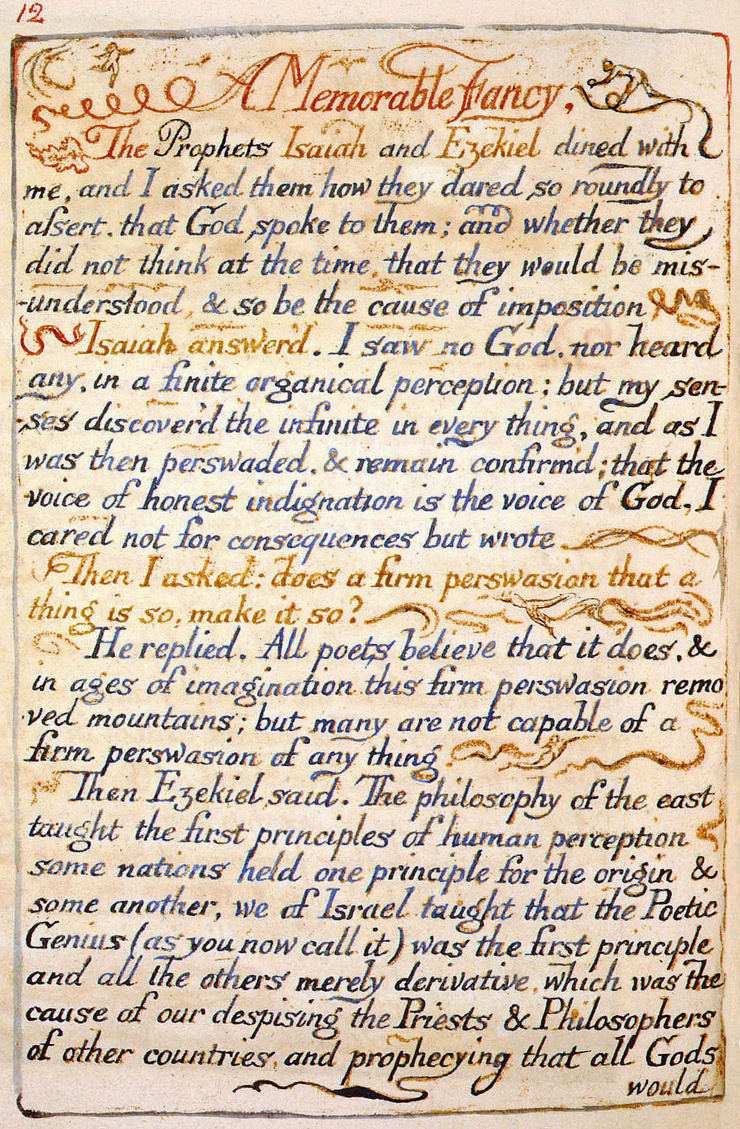 12
A Memorable Fancy.
The Prophets Isaiah and Ezekiel dined with
me, and I asked them how they dared so roundly to
aſsert. that God spoke to them; and whether they
did not think at the time, that they would be mis-
-understood, & so be the cause of imposition
Isaiah answer'd. I saw no God. nor heard
any, in a finite organical perception; but my sen-
-ses discover'd the infinite in every thing, and as I
was then perswaded, & remain confirm'd; that the
voice of honest indignation is the voice of God, I
cared not for consequences but wrote
Then I asked: does a firm perswasion that a
thing is so, make it so?
He replied. All poets believe that it does, &
in ages of imagination this firm perswasion remo
ved mountains; but many are not capable of a
firm perswasion of any thing
Then Ezekiel said. The philosophy of the east
taught the first principles of human perception
some nations held one principle for the origin &
some another, we of Israel taught that the Poetic
Genius (as you now call it) was the first principle
and all the others merely derivative, which was the
cause of our despising the Priests & Philosophers
of other countries, and prophecying that all Gods
would